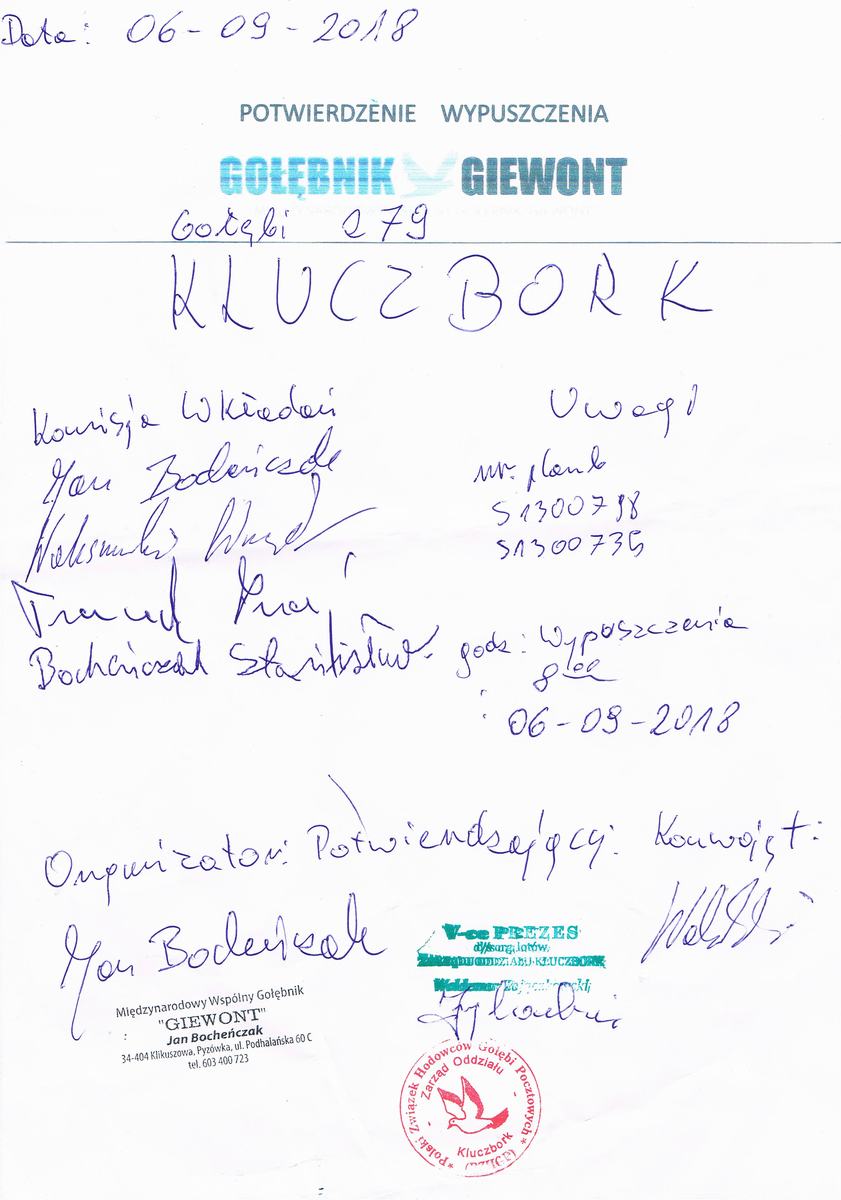 Data: 06-09-2018
POTWIERDZENIE WYPUSZCZENIA
GOŁĘBNIK GIEWONT
Gołębi 279
KLUCZBORK
Komisja Wkładań
Jan Bocheńczak
Bocheńczak Stanisław
Uwagi
nr. plomb
S1300798
S1300735
godz: Wypuszczenia
8 00
06-09-2018
Organizator: Potwierdzający: Konwojęt:
Jan Bocheńczak
Międzynarodowy Wspólny Gołębnik
"GIEWONT"
Jan Bocheńczak
34-404 Klikuszowa, Pyzówka, ul. Podhalańska 60 C
tel. 603 400 723
V-ce PREZES
d/s org. lotów
ZARZĄDU ODDZIAŁU KLUCZBORK
Waldemar
*Polski Związek Hodowców Gołębi Pocztowych*
Zarząd Oddziału
Kluczbork
(PZHGP)